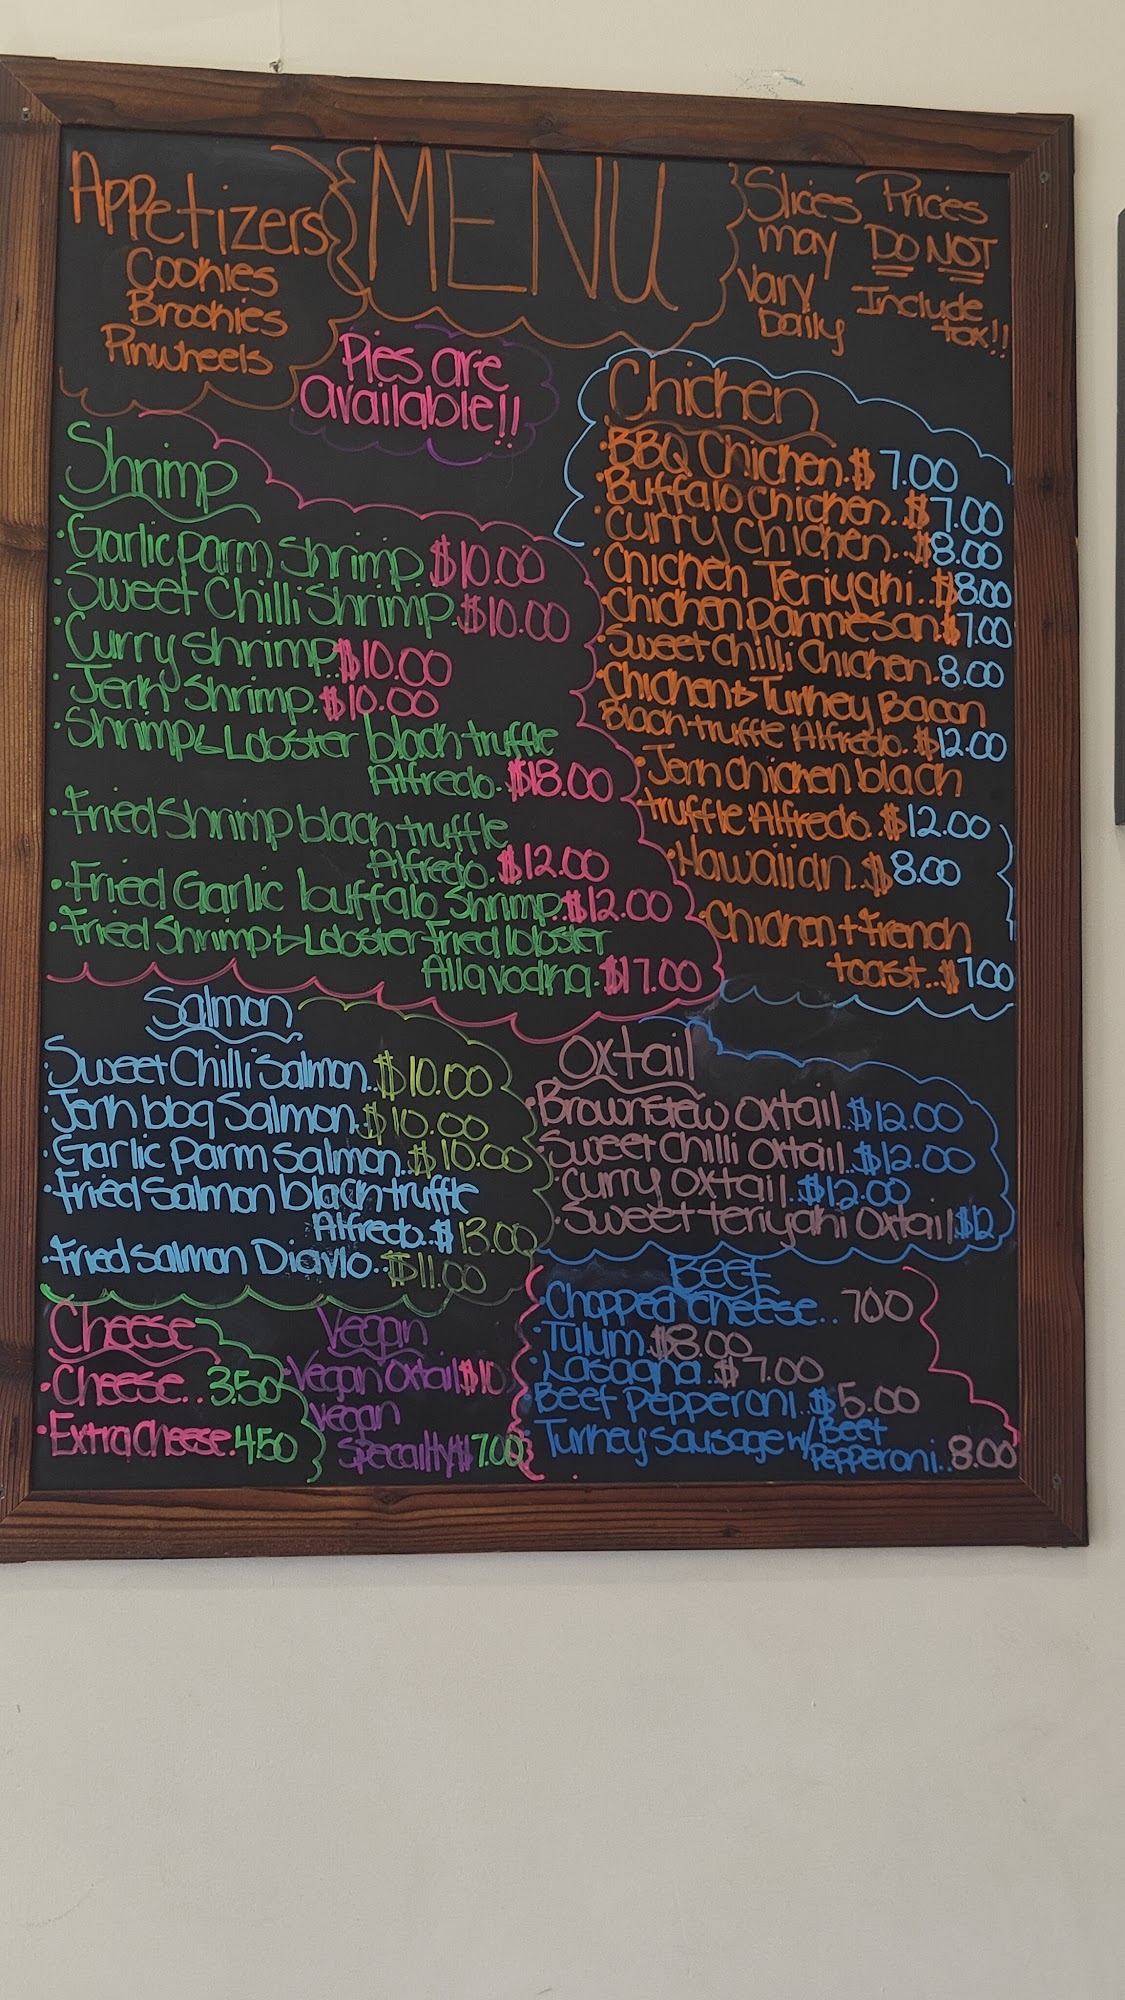 Appetizers
Cookies
Brookies
Pinwheels
MENU
Slices
may
vary
Daily
Prices
DO NOT
Include
tax!!
Pies are
available!!
Shrimp
·Garlic parm Shrimp. $10.00
·Sweet Chilli Shrimp. $10.00
·Curry shrimp. $10.00
·Jerk Shrimp. $10.00
·Shrimp & Lobster black truffle
Alfredo. $18.00
·Fried Shrimp black truffle
Alfredo. $12.00
·Fried Garlic buffalo Shrimp.. $12.00
·Fried Shrimp & Lobster Fried lobster
Alla vodka. $17.00
Chicken
·BBQ Chicken. $7.00
·Buffalo Chicken.. $7.00
·Curry Chicken.. $8.00
·Chicken Teriyaki.. $8.00
·Chicken Parmesan. $7.00
·Sweet Chilli Chicken. 8.00
·Chicken & Turkey Bacon
Black truffle Alfredo. $12.00
·Jerk chicken black
truffle Alfredo.. $12.00
·Hawaiian.. $8.00
·Chicken + French
toast.. $7.00
Salmon
·Sweet Chilli Salmon.. $10.00
·Jerk bbq Salmon. $10.00
·Garlic Parm Salmon.. $10.00
·Fried Salmon black truffle
Alfredo. $13.00
·Fried Salmon Diavlo.. $11.00
Oxtail
·Brownstew Oxtail. $12.00
·Sweet Chilli Oxtail.. $12.00
·Curry Oxtail.. $12.00
·Sweet teriyaki Oxtail $12
Cheese
·Cheese.. 3.50
·Extra Cheese. 4.50
Vegan
·Vegan Oxtail $10
·Vegan
Specailty $7.00
Beef
·Chopped Cheese.. 7.00
·Tulum. $8.00
·Lasagna.. $7.00
·Beef Pepperoni.. $5.00
·Turkey Sausage w/ Beef
Pepperoni.. 8.00